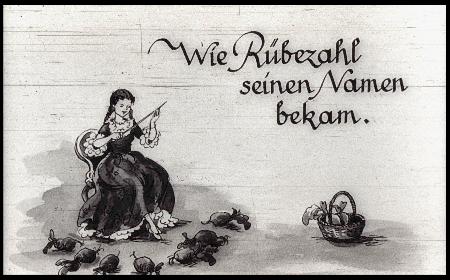 Wie Rübezahl
seinen Namen
bekam.